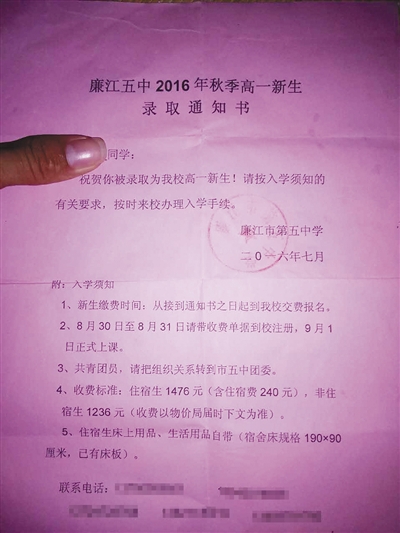 廉江五中 2016 年秋季高一新生
录取通知书
同学：
祝贺你被录取为我校高一新生！请按入学须知的
有关要求，按时来校办理入学手续。
廉江市第五中学
二〇一六年七月
附：入学须知
1、新生缴费时间：从接到通知书之日起到我校交费报名。
2、8 月 30 日至 8 月 31 日请带收费单据到校注册，9 月 1
日正式上课。
3、共青团员，请把组织关系转到市五中团委。
4、收费标准：住宿生 1476 元（含住宿费 240 元），非住
宿生 1236 元（收费以物价局届时下文为准）。
5、住宿生床上用品、生活用品自带（宿舍床规格 190×90
厘米，已有床板）。
联系电话：